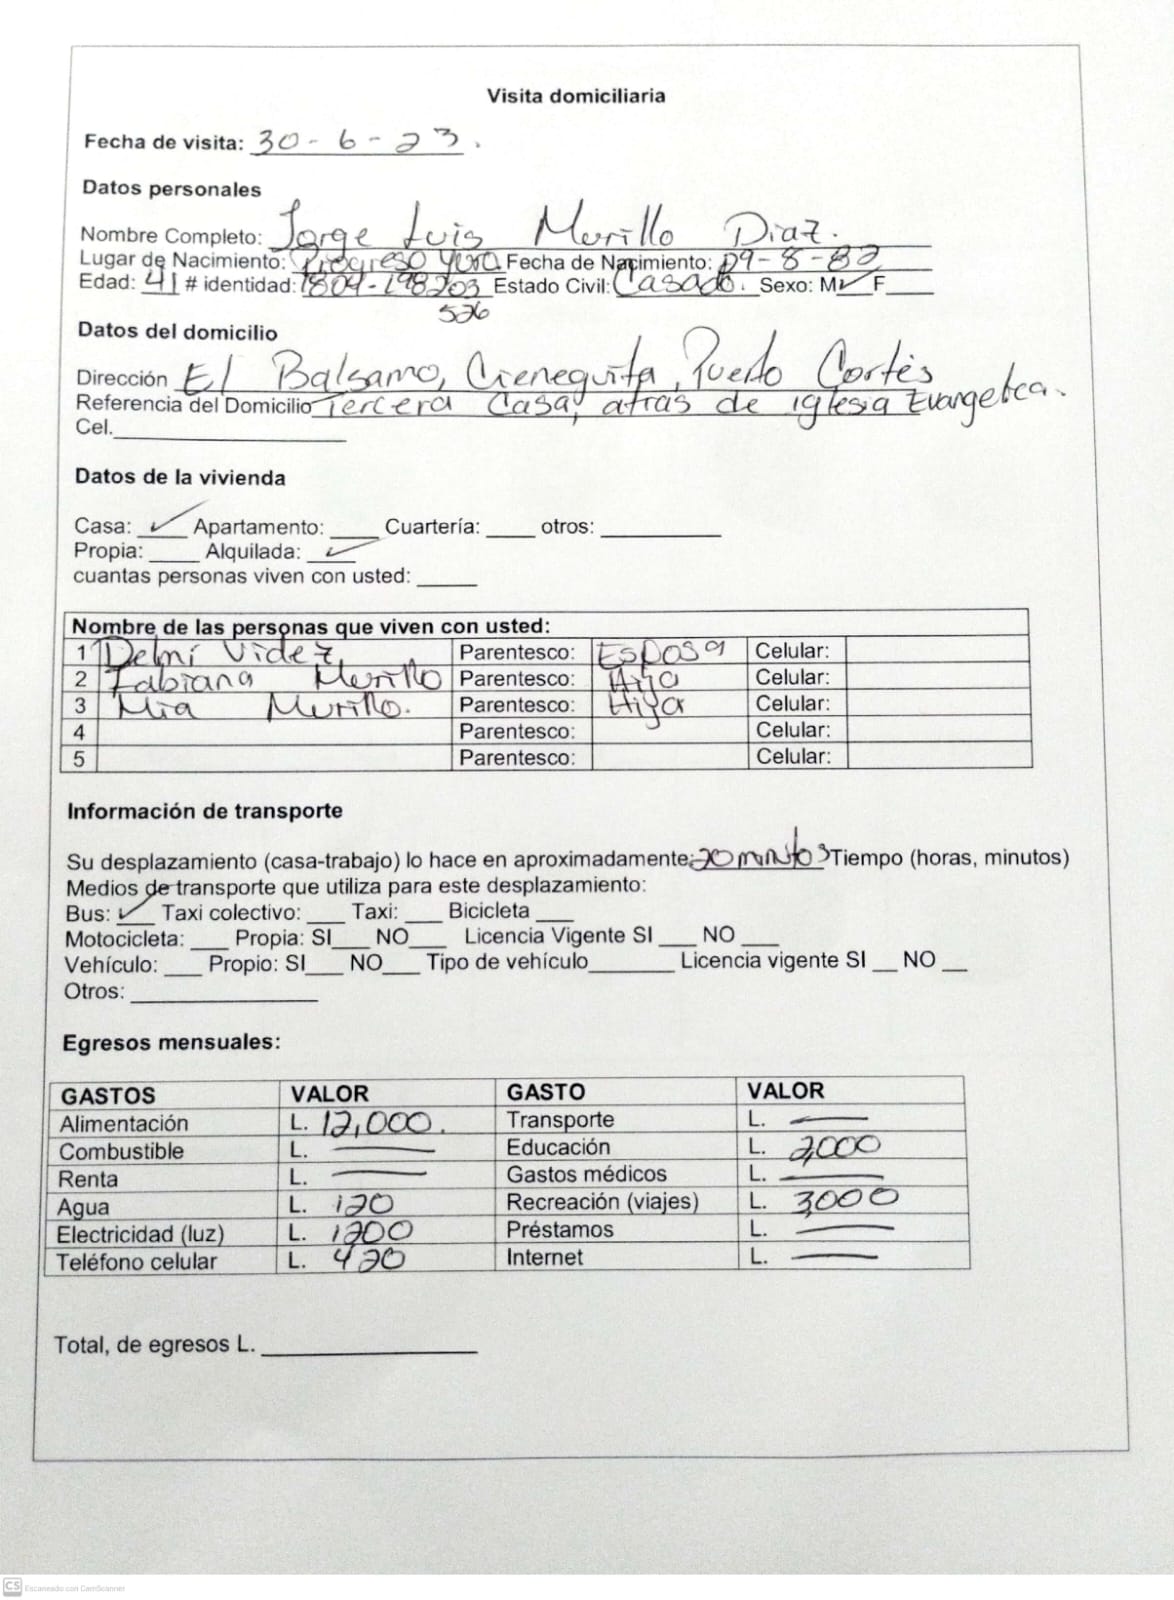 Visita domiciliaria
Fecha de visita: 30-6-23.
Datos personales
Nombre Completo: Jorge Luis Murillo Diaz.
Lugar de Nacimiento: Progreso Yoro. Fecha de Nacimiento: 09-8-82
Edad: 41 # identidad: 1804-198203 Estado Civil: Casado. Sexo: M✓ F____
526
Datos del domicilio
Dirección El Balsamo, Cieneguita, Puerto Cortés
Referencia del Domicilio Tercera Casa, atras de iglesia Evangelica.
Cel.____
Datos de la vivienda
Casa: ✓ Apartamento: ____ Cuartería: ____ otros: ____
Propia: ____ Alquilada: ✓
cuantas personas viven con usted: ____
Nombre de las personas que viven con usted:
1 Delmi Videz Parentesco: Esposa Celular:
2 Fabiana Murillo Parentesco: Hija Celular:
3 Mia Murillo. Parentesco: Hija Celular:
4 Parentesco: Celular:
5 Parentesco: Celular:
Información de transporte
Su desplazamiento (casa-trabajo) lo hace en aproximadamente: 20 minutos Tiempo (horas, minutos)
Medios de transporte que utiliza para este desplazamiento:
Bus: ✓ Taxi colectivo: ___ Taxi: ___ Bicicleta ___
Motocicleta: ___ Propia: SI___ NO___ Licencia Vigente SI ___ NO ___
Vehículo: ___ Propio: SI___ NO___ Tipo de vehículo____ Licencia vigente SI __ NO __
Otros: ____
Egresos mensuales:
GASTOS VALOR GASTO VALOR
Alimentación L. 12,000. Transporte L. —
Combustible L. — Educación L. 2,000
Renta L. — Gastos médicos L. —
Agua L. 120 Recreación (viajes) L. 3,000
Electricidad (luz) L. 1200 Préstamos L. —
Teléfono celular L. 420 Internet L. —
Total, de egresos L. ____
CS Escaneado con CamScanner